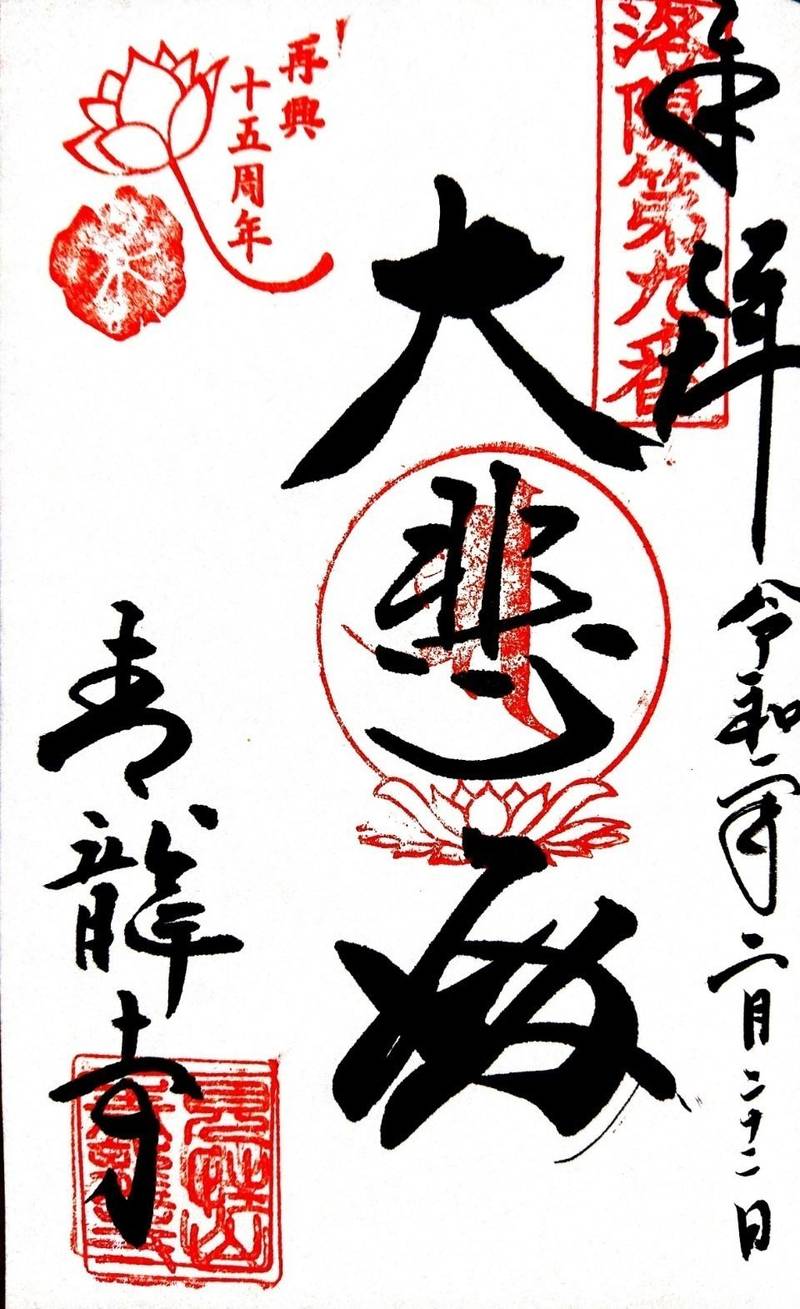 奉拝
洛陽第九番
令和二年二月二十二日
大悲殿
再興
十五周年
青龍寺
見性山
青龍寺